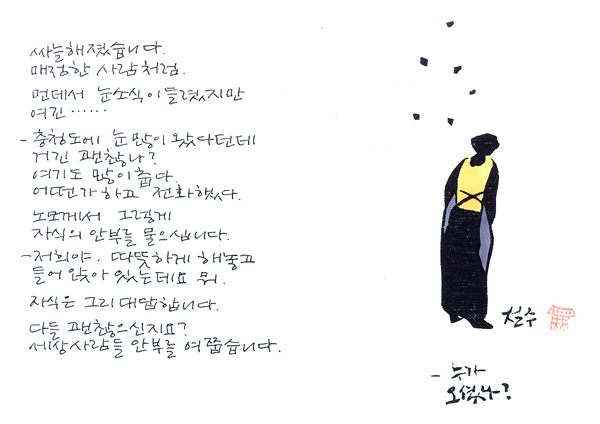 싸늘해졌습니다.
매정한 사람처럼.
먼데서 눈소식이 들렸지만
여긴……
- 충청도에 눈 많이 왔다던데
거긴 괜찮나?
여기도 많이 춥다.
어떤가 하고 전화했다.
노모께서 그렇게
자식의 안부를 물으십니다.
- 저희야, 따뜻하게 해놓고
들어 앉아 있는데요 뭐.
자식은 그리 대답합니다.
다들 괜찮으신지요?
세상사람들 안부를 여쭙습니다.
철수
- 누가
오셨나?